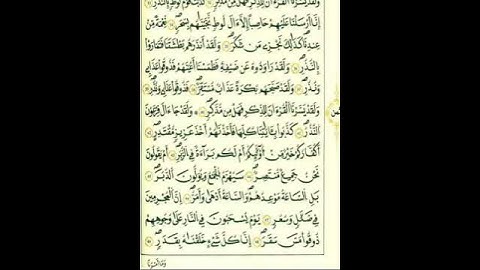 وَلَقَدْ يَسَّرْنَا ٱلْقُرْءَانَ لِلذِّكْرِ فَهَلْ مِن مُّدَّكِرٍ ٣٢ كَذَّبَتْ قَوْمُ لُوطٍۭ بِٱلنُّذُرِ ٣٣
إِنَّآ أَرْسَلْنَا عَلَيْهِمْ حَاصِبًا إِلَّآ ءَالَ لُوطٍ نَّجَّيْنَٰهُم بِسَحَرٍ ٣٤ نِّعْمَةً مِّنْ
عِندِنَا كَذَٰلِكَ نَجْزِى مَن شَكَرَ ٣٥ وَلَقَدْ أَنذَرَهُم بَطْشَتَنَا فَتَمَارَوْا۟
بِٱلنُّذُرِ ٣٦ وَلَقَدْ رَٰوَدُوهُ عَن ضَيْفِهِۦ فَطَمَسْنَآ أَعْيُنَهُمْ فَذُوقُوا۟ عَذَابِى
وَنُذُرِ ٣٧ وَلَقَدْ صَبَّحَهُم بُكْرَةً عَذَابٌ مُّسْتَقِرٌّ ٣٨ فَذُوقُوا۟ عَذَابِى وَنُذُرِ ٣٩
وَلَقَدْ يَسَّرْنَا ٱلْقُرْءَانَ لِلذِّكْرِ فَهَلْ مِن مُّدَّكِرٍ ٤٠ وَلَقَدْ جَآءَ ءَالَ فِرْعَوْنَ
ٱلنُّذُرُ ٤١ كَذَّبُوا۟ بِـَٔايَٰتِنَا كُلِّهَا فَأَخَذْنَٰهُمْ أَخْذَ عَزِيزٍ مُّقْتَدِرٍ ٤٢
أَكُفَّارُكُمْ خَيْرٌ مِّنْ أُو۟لَٰٓئِكُمْ أَمْ لَكُم بَرَآءَةٌ فِى ٱلزُّبُرِ ٤٣ أَمْ يَقُولُونَ
نَحْنُ جَمِيعٌ مُّنتَصِرٌ ٤٤ سَيُهْزَمُ ٱلْجَمْعُ وَيُوَلُّونَ ٱلدُّبُرَ ٤٥
بَلِ ٱلسَّاعَةُ مَوْعِدُهُمْ وَٱلسَّاعَةُ أَدْهَىٰ وَأَمَرُّ ٤٦ إِنَّ ٱلْمُجْرِمِينَ
فِى ضَلَٰلٍ وَسُعُرٍ ٤٧ يَوْمَ يُسْحَبُونَ فِى ٱلنَّارِ عَلَىٰ وُجُوهِهِمْ
ذُوقُوا۟ مَسَّ سَقَرَ ٤٨ إِنَّا كُلَّ شَىْءٍ خَلَقْنَٰهُ بِقَدَرٍ ٤٩